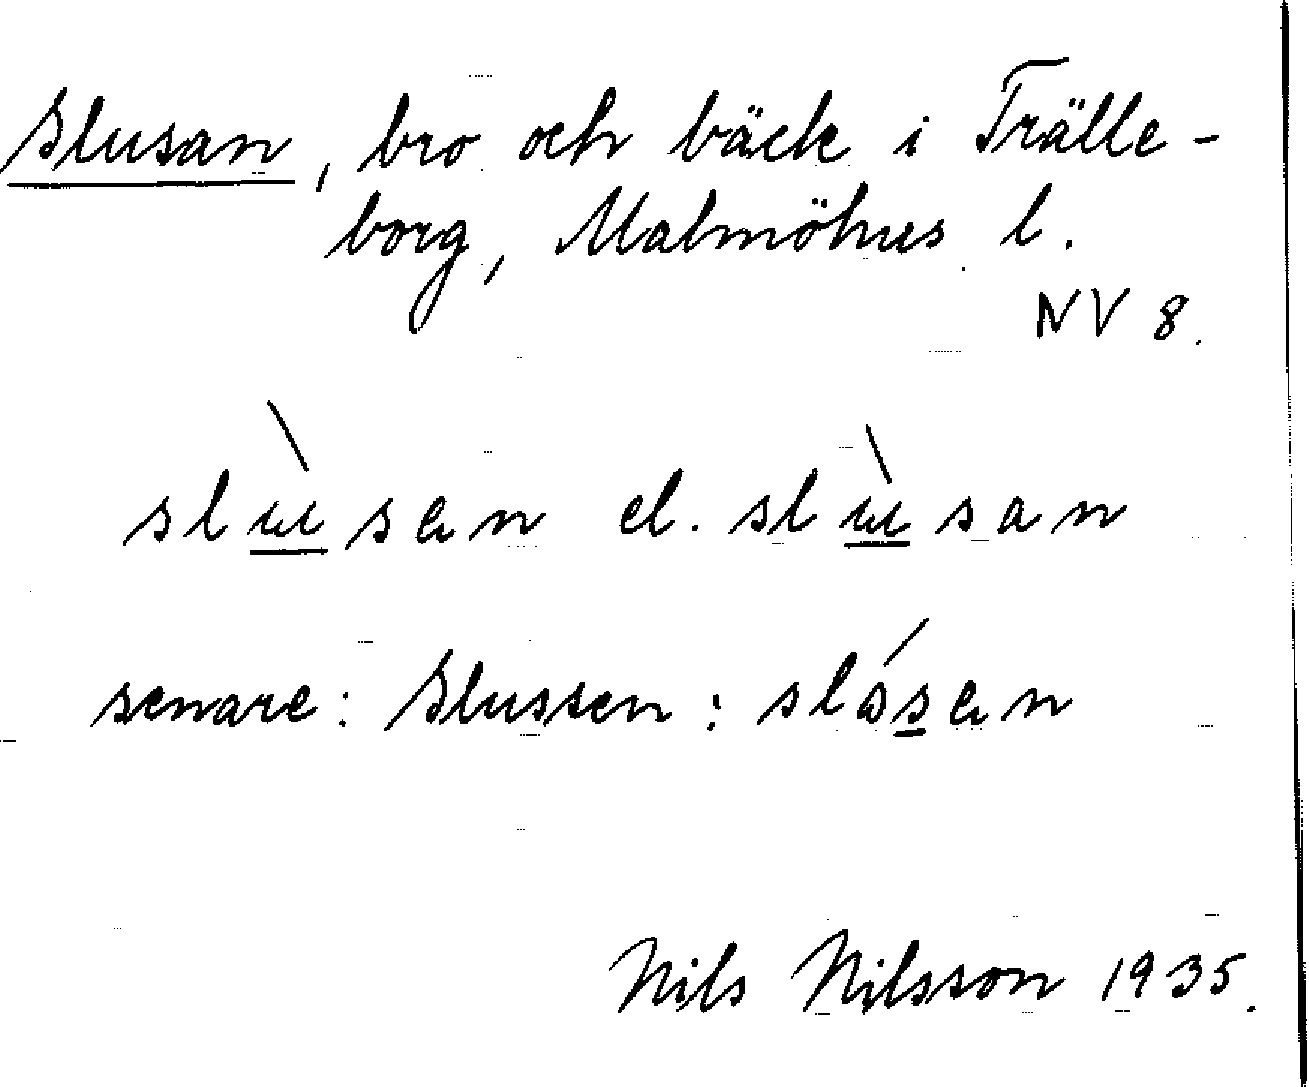 Slusan, bro och bäck i Trälle-
borg, Malmöhus l.
NV 8.
slɯ̀sən el. slɯ̀san
senare: Slussen: slɷ́sən
Nils Nilsson 1935.